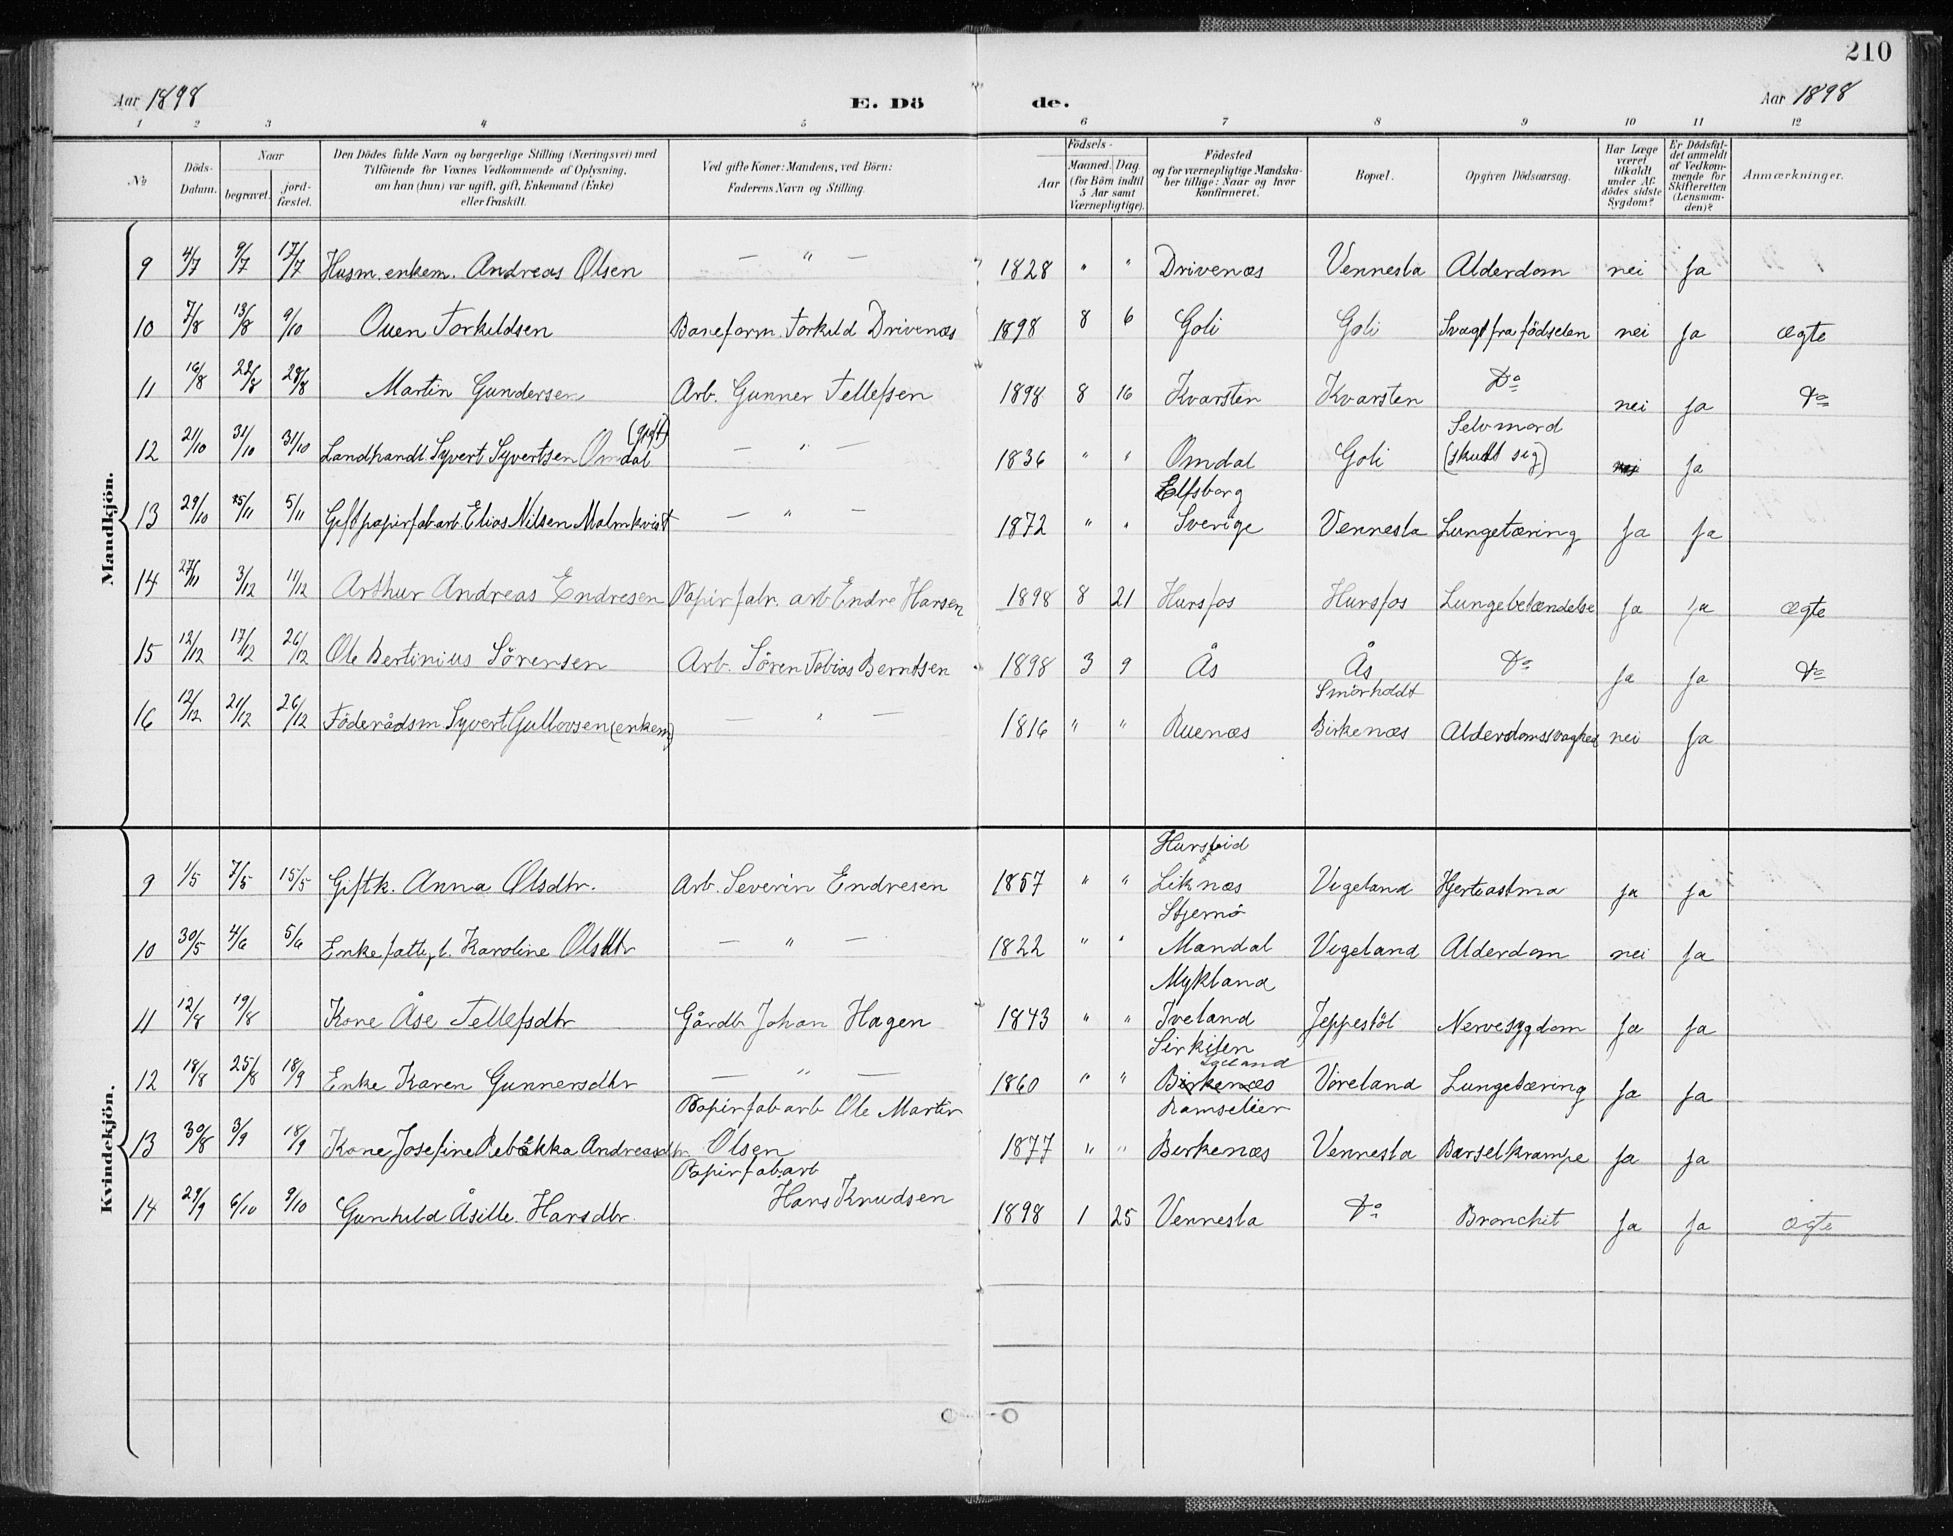 210
Aar 1898 E. Dö de. Aar 1898
1 2 3 4 5 6 7 8 9 10 11 12
No Döds-Datum. Naar begravet. jord-fæstet. Den Dödes fulde Navn og borgerlige Stilling (Næringsvei) med Tilföiende for Voxnes Vedkommende af Oplysning, om han (hun) var ugift, gift, Enkemand (Enke) eller fraskilt. Ved gifte Koner: Mandens, ved Börn: Faderens Navn og Stilling. Födsels- Aar Maaned. Dag (for Börn indtil 5 Aar samt Værnepligtige). Födested og for værnepligtige Mandskaber tillige: Naar og hvor konfirmeret. Bopæl. Opgiven Dödsaarsag. Har Læge været tilkaldt under Afdödes sidste Sygdom? Er Dödsfaldet anmeldt af Vedkommende for Skifteretten (Lensmanden)? Anmærkninger.
Mandkjön.
9 4/7 9/7 17/7 Husm. enkem. Andreas Olsen — " — 1828 " " Drivenæs Vennesla Alderdom nei Ja
10 7/8 13/8 9/10 Ouen Torkildsen Baneform. Torkild Drivenæs 1898 8 6 Goli Goli Svagt fra födselen nei Ja ægte
11 16/8 22/8 28/8 Martin Gundersen Arb. Gunner Tellefsen 1898 8 16 Kvarsten Kvarsten Do nei Ja Do
12 21/10 31/10 31/10 Landhandl. Syvert Syvertsen Omdal (gift) — " — 1836 " " Omdal Goli Selvmord (skudt sig) nei Ja
13 29/10 5/11 5/11 Gift papirfabarb. Elias Nilsen Malmkvist — " — 1872 " " Elfsborg Sverige Vennesla Lungetæring Ja Ja
14 27/11 3/12 11/12 Arthur Andreas Endresen Papirfabr. arb Endre Hansen 1898 8 21 Hunsfos Hunsfos Lungebetændelse Ja Ja ægte
15 12/12 17/12 26/12 Ole Bertinius Sörensen Arb. Sören Tobias Berntsen 1898 3 9 Ås Ås Do Ja Ja Do
16 12/12 21/12 26/12 Föderådsm Syvert Gullovsen (enkem) — " — 1816 " " Ruenæs Smörholdt Birkenæs Alderdomssvaghed nei Ja
Kvindekjön.
9 1/5 7/5 15/5 Gift k. Anna Olsdtr. Arb. Severin Endresen 1857 " " Liknæs Vigeland Hjerteastma Ja Ja
10 30/5 4/6 5/6 Enke fattigl. Karoline Olsdtr — " — 1822 " " Stjernö Mandal Vigeland Alderdom nei Ja
11 12/8 19/8 Kone Åse Tellefsdtr Gårdb Johan Hagen 1843 " " Mykland Iveland Jeppestöl Nervesygdom Ja Ja
12 18/8 25/8 18/9 Enke Karen Gunnersdtr — " — 1860 " " Birkenæs Vöreland Lungetæring Ja Ja
13 30/8 3/9 18/9 Kone Josefine Rebekka Andreasdtr Papirfabarb Ole Martin Olsen 1877 " " Ramselier Birkenæs Vennesla Barselkrampe Ja Ja
14 29/9 6/10 9/10 Gunhild Åsille. Hansdtr. Papirfabarb Hans Knudsen 1898 1 25 Vennesla Do Bronchit Ja Ja ægte